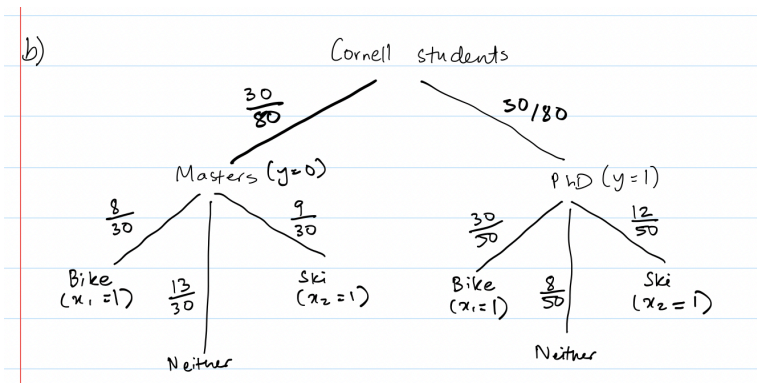 b)
Cornell students
30/80
50/80
Masters (y=0)
PhD (y=1)
8/30
9/30
30/50
12/50
Bike
(x₁=1)
13/30
Ski
(x₂=1)
Bike
(x₁=1)
8/50
Ski
(x₂=1)
Neither
Neither